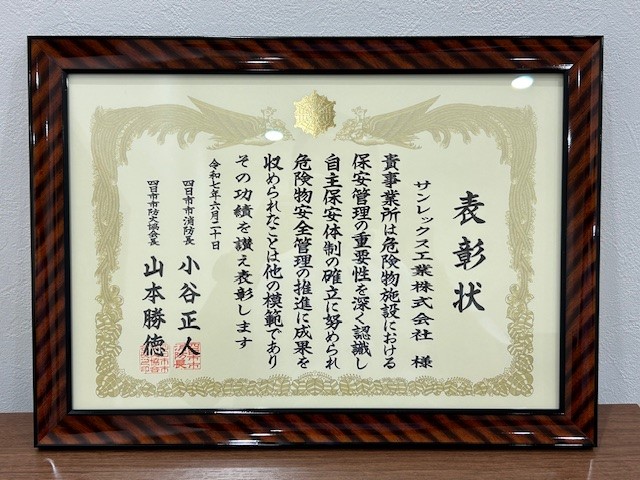 表彰状
サンレックス工業株式会社 様
貴事業所は危険物施設における
保安管理の重要性を深く認識し
自主保安体制の確立に努められ
危険物安全管理の推進に成果を
収められたことは他の模範であり
その功績を讃え表彰します
令和七年六月二十日
四日市市消防長 小谷正人
四日市市防火協会長 山本勝徳